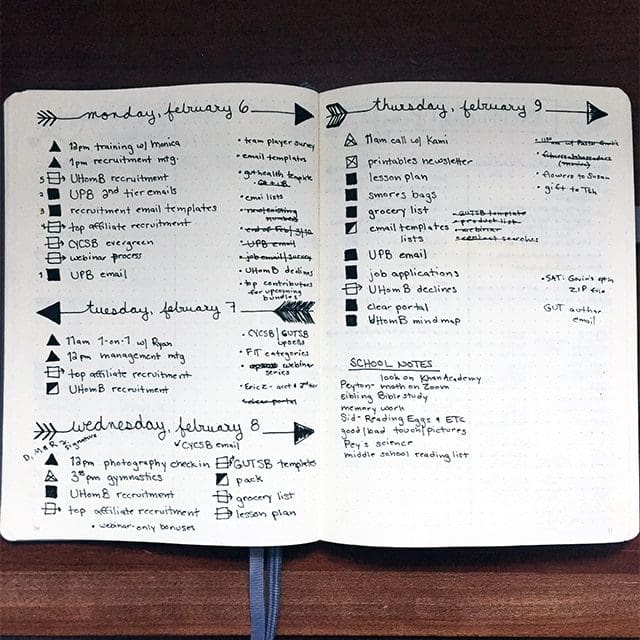 monday, february 6
12pm training w/ Monica
1pm recruitment mtg.
5 UHomB recruitment
2 UPB 2nd tier emails
3 recruitment email templates
4 top affiliate recruitment
CYCSB evergreen
webinar process
1 UPB email
• team player survey
• email templates
• gut health template
• email lists
• UPB email
• job email/survey
• UHomB declines
• top contributors
for upcoming
bundles
tuesday, february 7
11am 1-on-1 w/ Ryan
12pm management mtg
top affiliate recruitment
UHomB recruitment
• CYCSB/GUTSB
upsells
• FIT categories
• webinar
series
• clear portal
wednesday, february 8
signature
✓CYCSB email
12pm photography check in
3:30pm gymnastics
UHomB recruitment
top affiliate recruitment
• webinar-only bonuses
GUTSB template
pack
grocery list
lesson plan
thursday, february 9
11am call w/ Kami
printables newsletter
lesson plan
smores bags
grocery list
email templates
lists
UPB email
job applications
UHomB declines
clear portal
UHomB mind map
• flowers to Susan
• gift to Tbh
• GUTSB template
• product list
• webinar
• contact searches
• SAT: Gavin's
ZIP file
GUT author
email
SCHOOL NOTES
look on Khan Academy
Peyton- math on Zoom
sibling Bible study
memory work
Sid- Reading Eggs + ETC
good/bad touch/pictures
Pey's science
middle school reading list